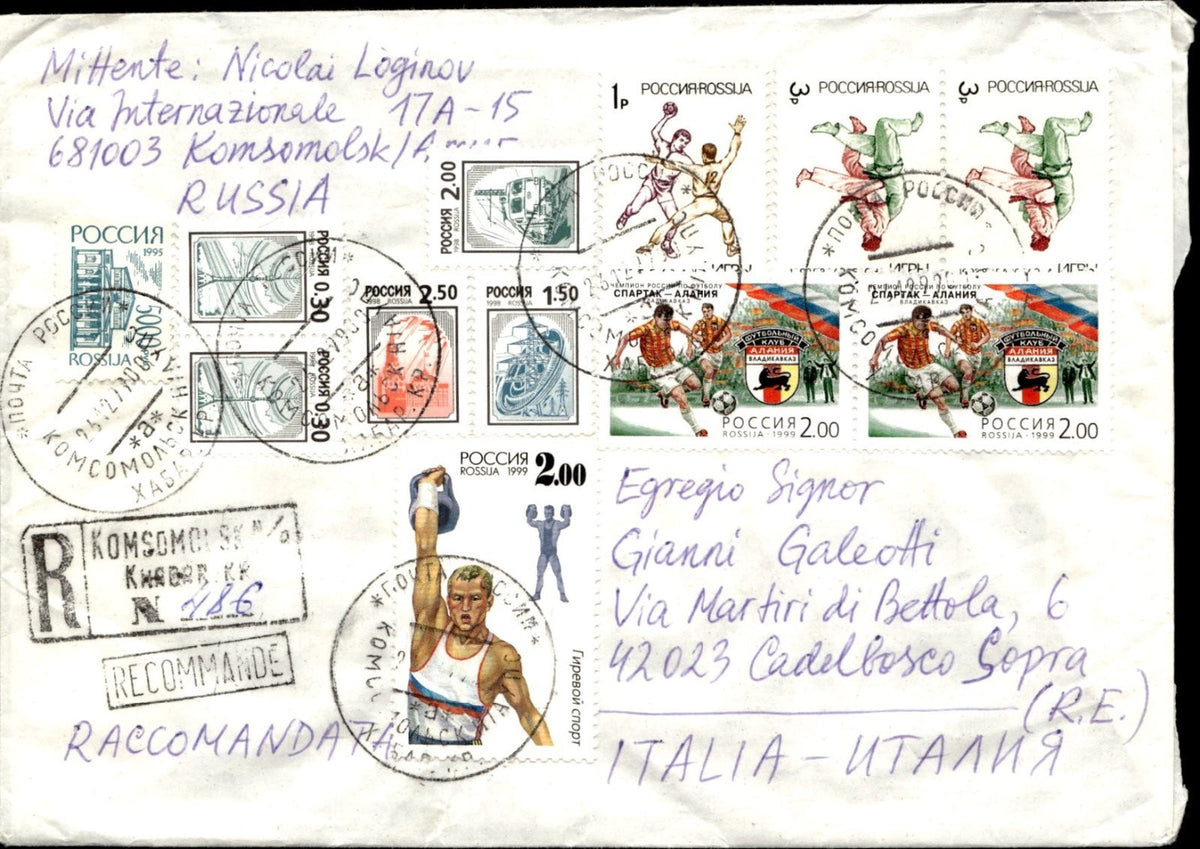 Mittente: Nicolai Loginov
Via Internazionale 17A-15
681003 Komsomolsk/
RUSSIA
РОССИЯ
1995
5000
ROSSIJA
РОССИЯ 0.30
РОССИЯ 0.30
РОССИЯ 2.00
1998 ROSSIJA
РОССИЯ 2.50
1998 ROSSIJA
РОССИЯ 1.50
1998 ROSSIJA
1р РОССИЯ·ROSSIJA
12
ИГРЫ
3р РОССИЯ·ROSSIJA
ИГРЫ
3р РОССИЯ·ROSSIJA
ИГРЫ
ЧЕМПИОН РОССИИ ПО ФУТБОЛУ
СПАРТАК – АЛАНИЯ
ВЛАДИКАВКАЗ
ФУТБОЛЬНЫЙ
КЛУБ
АЛАНИЯ
ВЛАДИКАВКАЗ
РОССИЯ
ROSSIJA · 1999 2.00
ЧЕМПИОН РОССИИ ПО ФУТБОЛУ
СПАРТАК – АЛАНИЯ
ВЛАДИКАВКАЗ
ФУТБОЛЬНЫЙ
КЛУБ
АЛАНИЯ
ВЛАДИКАВКАЗ
РОССИЯ
ROSSIJA · 1999 2.00
*ПОЧТА РОССИИ*
КОМСОМОЛЬСК Н/А
*а*
РОССИЯ
ROSSIJA 1999 2.00
Гиревой спорт
R
KOMSOMOLSK N/a
KHABAR. KR
N 486
RECOMMANDE
RACCOMANDATA
Egregio Signor
Gianni Galeotti
Via Martiri di Bettola, 6
42023 Cadelbosco Sopra
(R.E.)
ITALIA – ИТАЛИЯ